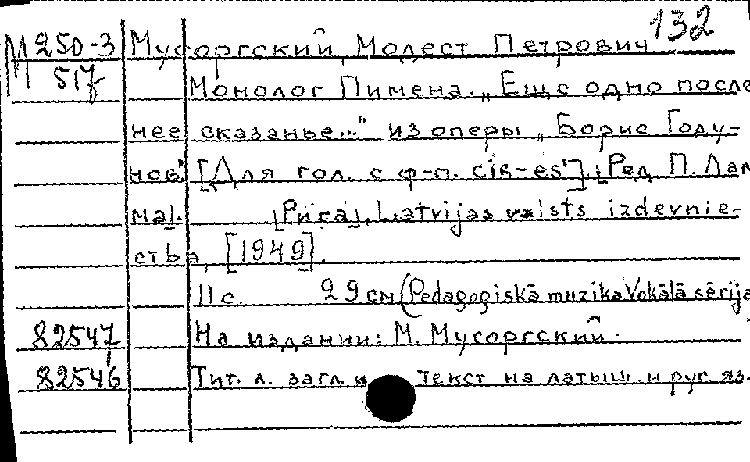 132
М 250-3 Мусоргский, Модест Петрович
М 517 Монолог Пимена. „Еще одно после
нее сказанье..." из оперы „Борис Году-
нов" [Для гол. с ф-п. cis-es']. [Ред. П. Лам
ма]. [Рига], Latvijas valsts izdevnie-
ства, [1949].
11 с. 29 см (Pedagoģiskā muzika. Vokālā sērija
82547 На издании: М. Мусоргский.
82546 Тит. л. загл. и текст на латыш. и рус. яз.